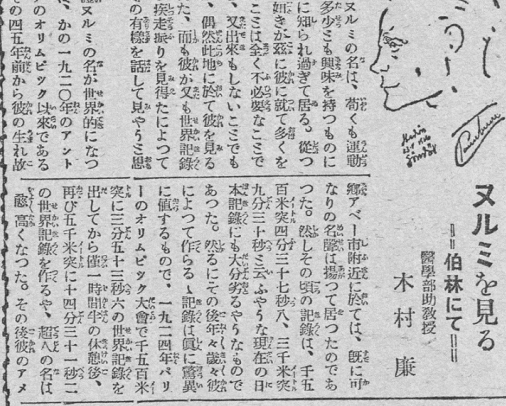 ヌルミを見る
＝伯林にて＝
醫學部助教授
木村廉
ヌルミの名は、苟くも運動
多少とも興味を持つものに
に知られ過ぎて居る。從つ
如きが茲に彼に就て多くを
ことは全く不必要なことで
、又出來もしないことでも
、偶然此地に於て彼を見る
た、而も彼が又も世界記錄
疾走振りを見得たによつて
の有樣を話して見やうと思
ヌルミの名が世界的になつ
、かの一九二〇年のアント
のオリムピツク以來である
の四五年前から彼の生れ故
鄕アベー市附近に於ては、旣に可
なりの名聲は揚つて居つたのであ
つた。然しその頃の記錄は、千五
百米突四分三十七秒八、三千米突
九分三十秒と云ふやうな現在の日
本記錄にも大分劣るやうなもので
あつた。然るにその後年々歲々彼
によつて作らるゝ記錄は眞に驚異
に値するもので、一九二四年パリ
ーのオリムピツク大會で千五百米
突に三分五十三秒六の世界記錄を
出してから僅一時間半の休憩後、
再び五千米突に十四分三十一秒二
の世界記錄を作るや、超人の名は
高くなつた。その後彼のアメ